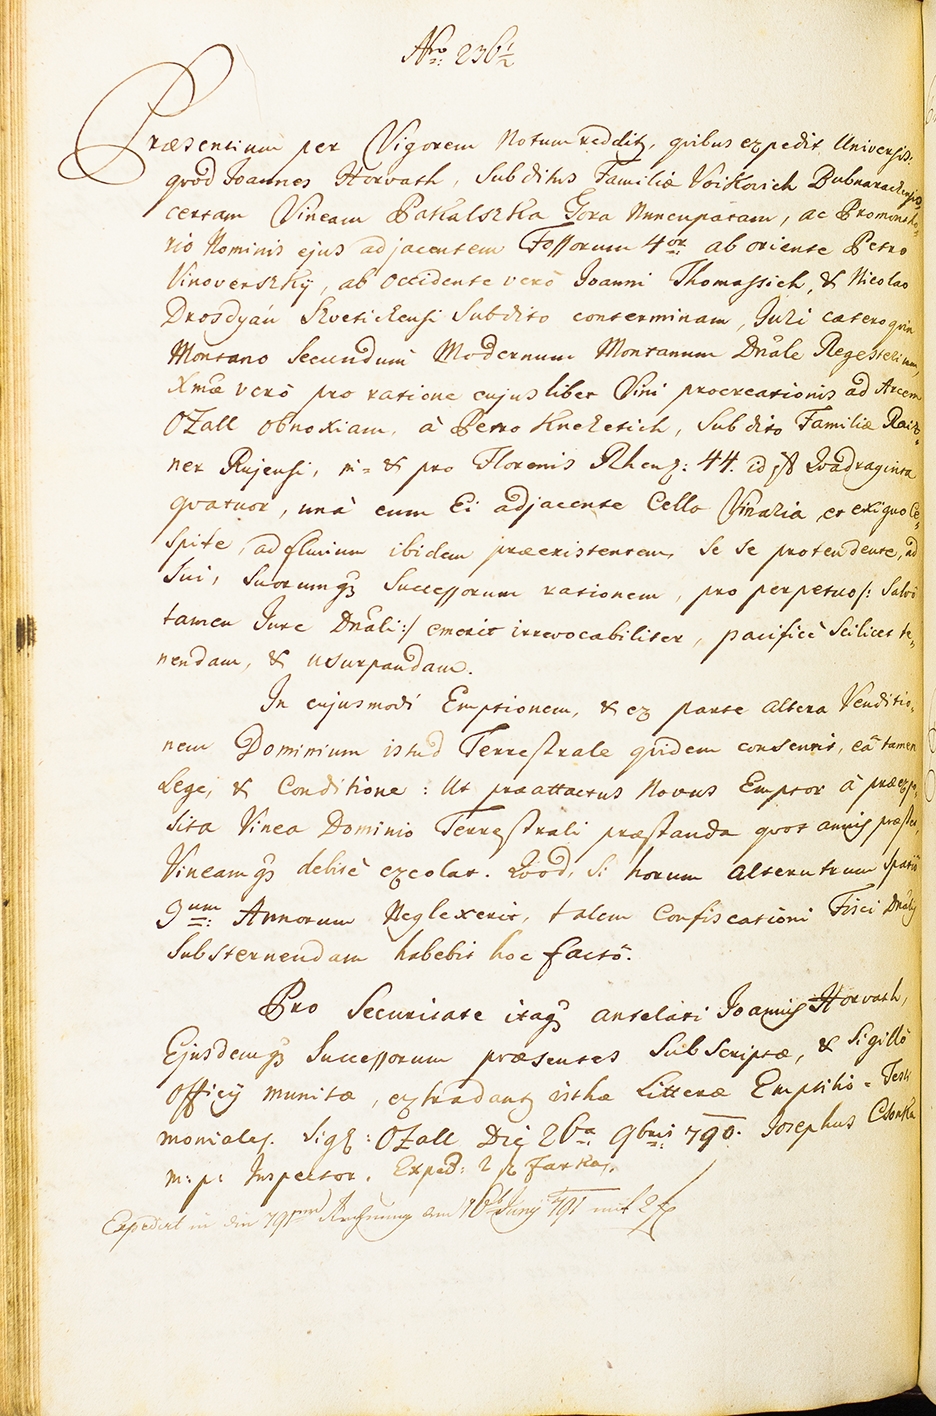 Nro: 236½
Præsentium per Vigorem Notum redditz, quibus expedit Universis:
qvod Joannes Horvath, Subditus Familiæ Voikovich Bubnaraczensis,
certam Vineam Pakalszka Gora Nuncupatam, ac Promontho=
rio Nominis ejus adjacentem Fossorum 4or ab oriente Petro
Vinoverszky, ab Occidente verò Joanni Thomassich, & Nicolao
Drosdyán Szvetickensi Subdito conterminam, Juri cæteroquin
Montano Secundum Modernum Montanum Dnale Regestrum,
Xmæ verò pro ratione cujuslibet Vini procreationis ad Arcem
OZall obnoxiam, à Petro Knezetich, Subdito Familiæ Rait=
ner Rujensi, in & pro Florenis Rhens: 44. id est Qvadraginta
qvatuor, unà cum Ei adjacente Cella Vinaria et exiguo Ce=
spite, ad fluvium ibidem præexistentem, se se protendente, ad
Sui, Suorumq3 Successorum rationem, pro perpetuo /: Salvo
tamen Jure Dnali :/ emerit irrevocabiliter, pacificè scilicet te=
nendam, & usurpandam.
In cujusmodi Emptionem, & ex parte altera Venditio=
nem Dominium istud Terrestrale quidem consensit, eâ tamen
Lege, & Conditione: Ut præattactus Novus Emptor à præexpo=
sita Vinea Dominio Terrestrali præstanda quot annis præstet,
Vineamq3 debitè excolat. Qvod, si horum alterutrum Spatio
3um: Annorum Neglexerit, talem Confiscationi Fisci Dnalis
Substernendam habebit hoc facto.
Pro Securitate itaq3 antelati Joannis Horvath,
Ejusdemq3 Successorum præsentes Subscriptæ, & Sigillô
Officij munitæ, extradantz isthæ Litteræ Emptitio = Testi
moniales. Sigl: OZall Die 26ta 9bris 790. Josephus Csonka
m: p: Inspector. Exped: 2 f Farkas.
Expedirt in die 791ten Rechnung am 16t Juny 791 mit 2 f